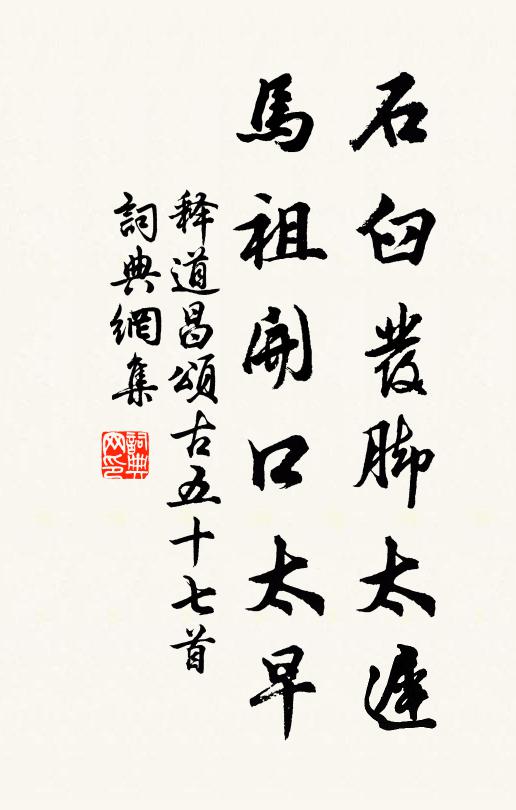 石臼發脚太遲
馬祖開口太早
释道昌頌古五十七首
詞典網集
詞典网印